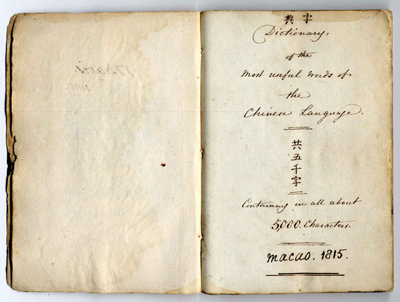 典字
Dictionary,
of the
most useful words of
the
Chinese Language.
共
五
千
字
Containing in all about
5,000. Characters.
macao. 1815.